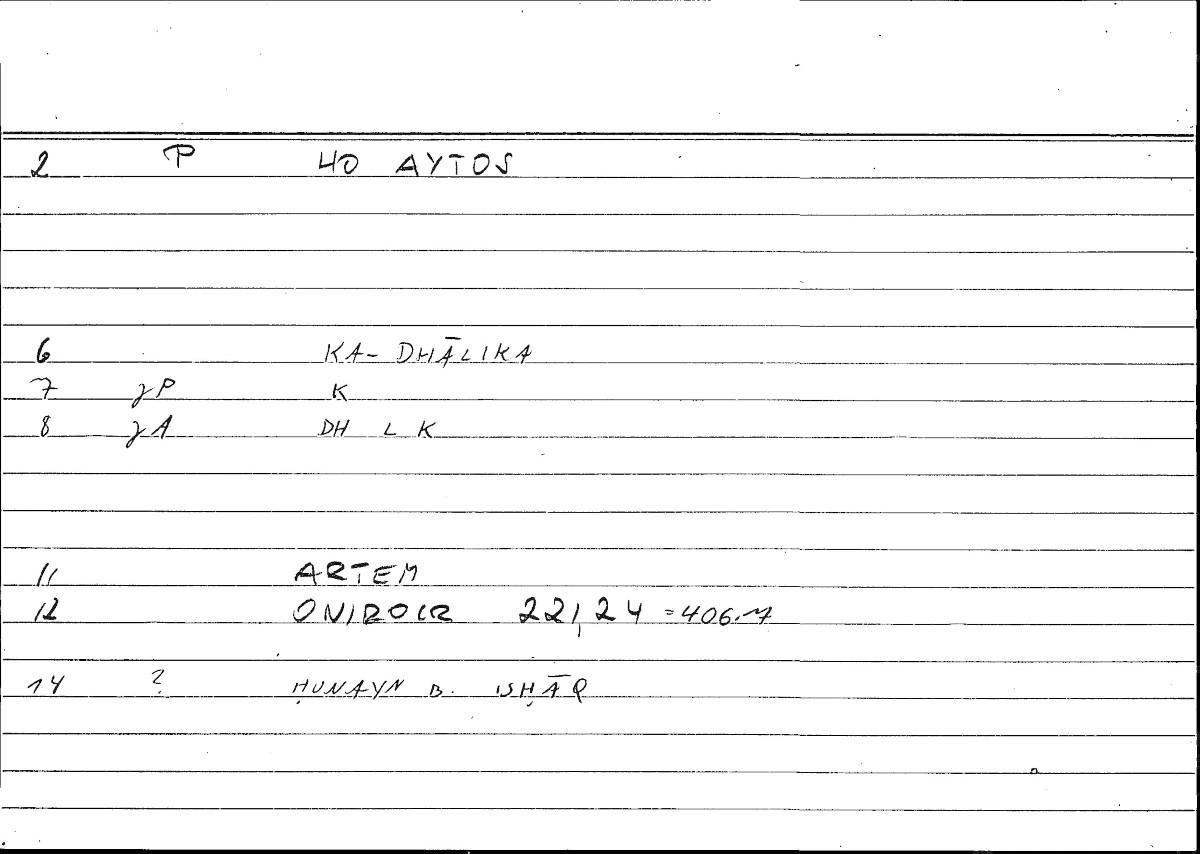 2 P HO AYTOS
6 KA-DHĀLIKA
7 γP K
8 γA DH L K
11 ARTEM
12 ONIROCR 22,24 = 406.7
14 ? ḤUNAYN B. ISḤĀQ